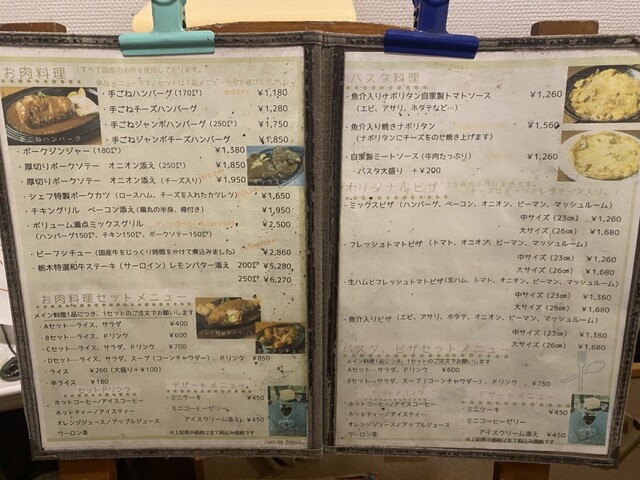 お肉料理
(すべて国産のお肉を使用しております。
・手ごねハンバーグ (170㌘) ¥1,180
手ごねチーズハンバーグ ¥1,280
・手ごねジャンボハンバーグ (250㌘) ¥1,750
手ごねジャンボチーズハンバーグ ¥1,850
手ごねハンバーグ
・ポークジンジャー (180㌘) ¥1,380
・厚切りポークソテー オニオン添え (250㌘) ¥1,850
・厚切りポークソテー オニオン添え (チーズ入り) ¥1,950
・シェフ特製ポークカツ (ロースハム、チーズを入れたカツレツ) ¥1,650
・チキングリル ベーコン添え (鶏丸の半身、骨付き) ¥1,950
・ボリューム満点ミックスグリル ¥2,500
(ハンバーグ150㌘、チキン150㌘、ポークソテー150㌘)
・ビーフシチュー (国産牛をじっくり時間をかけて煮込みました) ¥2,860
・栃木特選和牛ステーキ (サーロイン) レモンバター添え 200㌘ ¥5,280
250㌘ ¥6,270
お肉料理セットメニュー
メイン料理1品につき、1セットのご注文でお願いします
・Aセット…ライス、サラダ ¥400
・Bセット…ライス、ドリンク ¥600
・Cセット…ライス、サラダ、ドリンク ¥700
・Dセット…ライス、サラダ、スープ (コーンチャウダー)、ドリンク ¥850
・ライス ¥260 (大盛り+¥100)
・半ライス ¥180
セットドリンク
ホットコーヒー/アイスコーヒー
ホットティー/アイスティー
オレンジジュース/アップルジュース
ウーロン茶
デザートメニュー
・ミニケーキ ¥450
・ミニコーヒーゼリー
アイスクリーム添え ¥450
※上記表示価格は全て税込み価格です
パスタ料理
・魚介入りナポリタン自家製トマトソース ¥1,260
(エビ、アサリ、ホタテなど…)
・魚介入り焼きナポリタン ¥1,560
(ナポリタンにチーズをのせ焼き上げます)
・自家製ミートソース (牛肉たっぷり) ¥1,260
・パスタ大盛り +¥200
オリジナルピザ
・ミックスピザ (ハンバーグ、ベーコン、オニオン、ピーマン、マッシュルーム)
中サイズ (23㎝) ¥1,260
大サイズ (26㎝) ¥1,680
・フレッシュトマトピザ (トマト、オニオン、ピーマン、マッシュルーム)
中サイズ (23㎝) ¥1,260
大サイズ (26㎝) ¥1,680
・生ハムとフレッシュトマトピザ (生ハム、トマト、オニオン、ピーマン、マッシュルーム)
中サイズ (23㎝) ¥1,360
大サイズ (26㎝) ¥1,680
・魚介入りピザ (エビ、アサリ、ホタテ、オニオン、ピーマン、マッシュルーム)
中サイズ (23㎝) ¥1,360
大サイズ (26㎝) ¥1,680
パスタ・ピザセットメニュー
メイン料理1品につき、1セットのご注文でお願いします
Aセット…サラダ、ドリンク ¥600
Bセット…サラダ、スープ (コーンチャウダー)、ドリンク ¥750
ホットコーヒー/アイスコーヒー
ホットティー/アイスティー
オレンジジュース/アップルジュース
・ウーロン茶
デザートメニュー
・ミニケーキ ¥450
・ミニコーヒーゼリー
アイスクリーム添え ¥450
※上記表示価格は全て税込み価格です